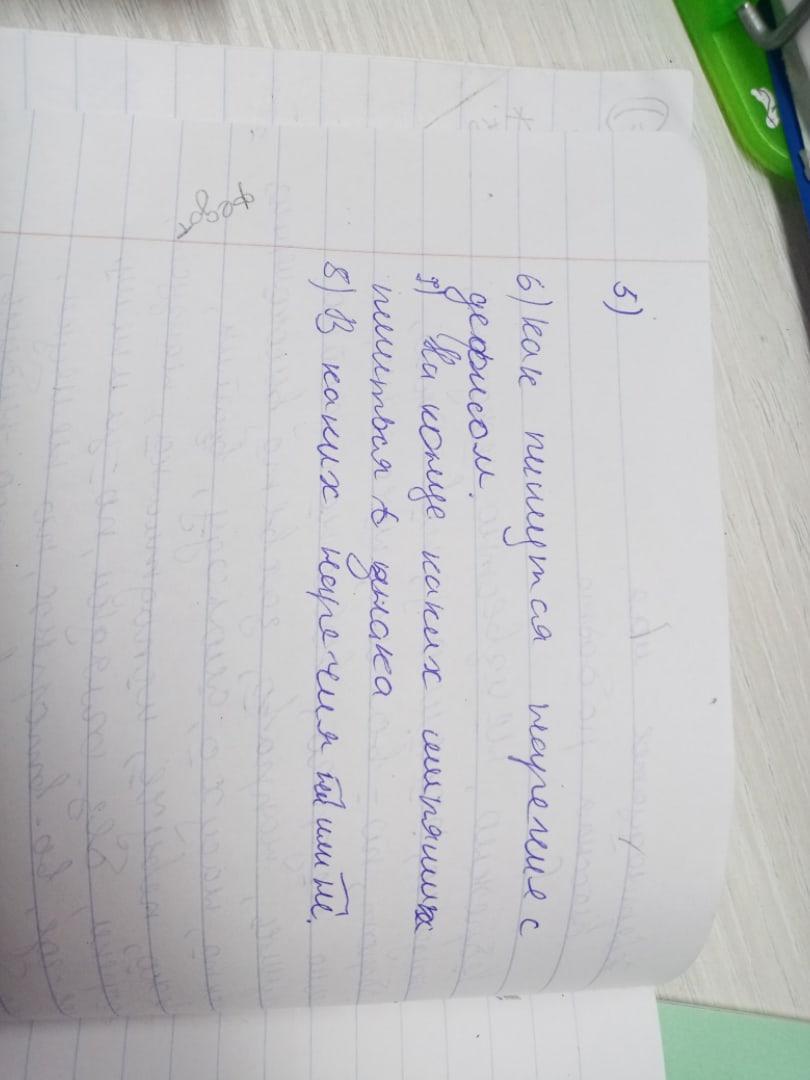 5)
6) как пишутся наречия с
дефисом.
7) На конце каких шипящих
пишиться ь знака
8) В каких наречия не или ни.